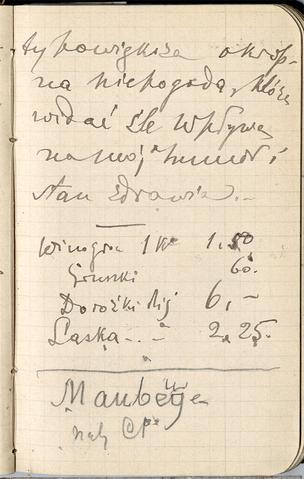 okrop-
na niepogoda, która
widać źle wpływa
na mój humor i
stan zdrowia. -
Winogron 1 K° 1,50
Gruszki 60.
Dorożki 6,-
Laska - . - 2,25.
Maubeuge